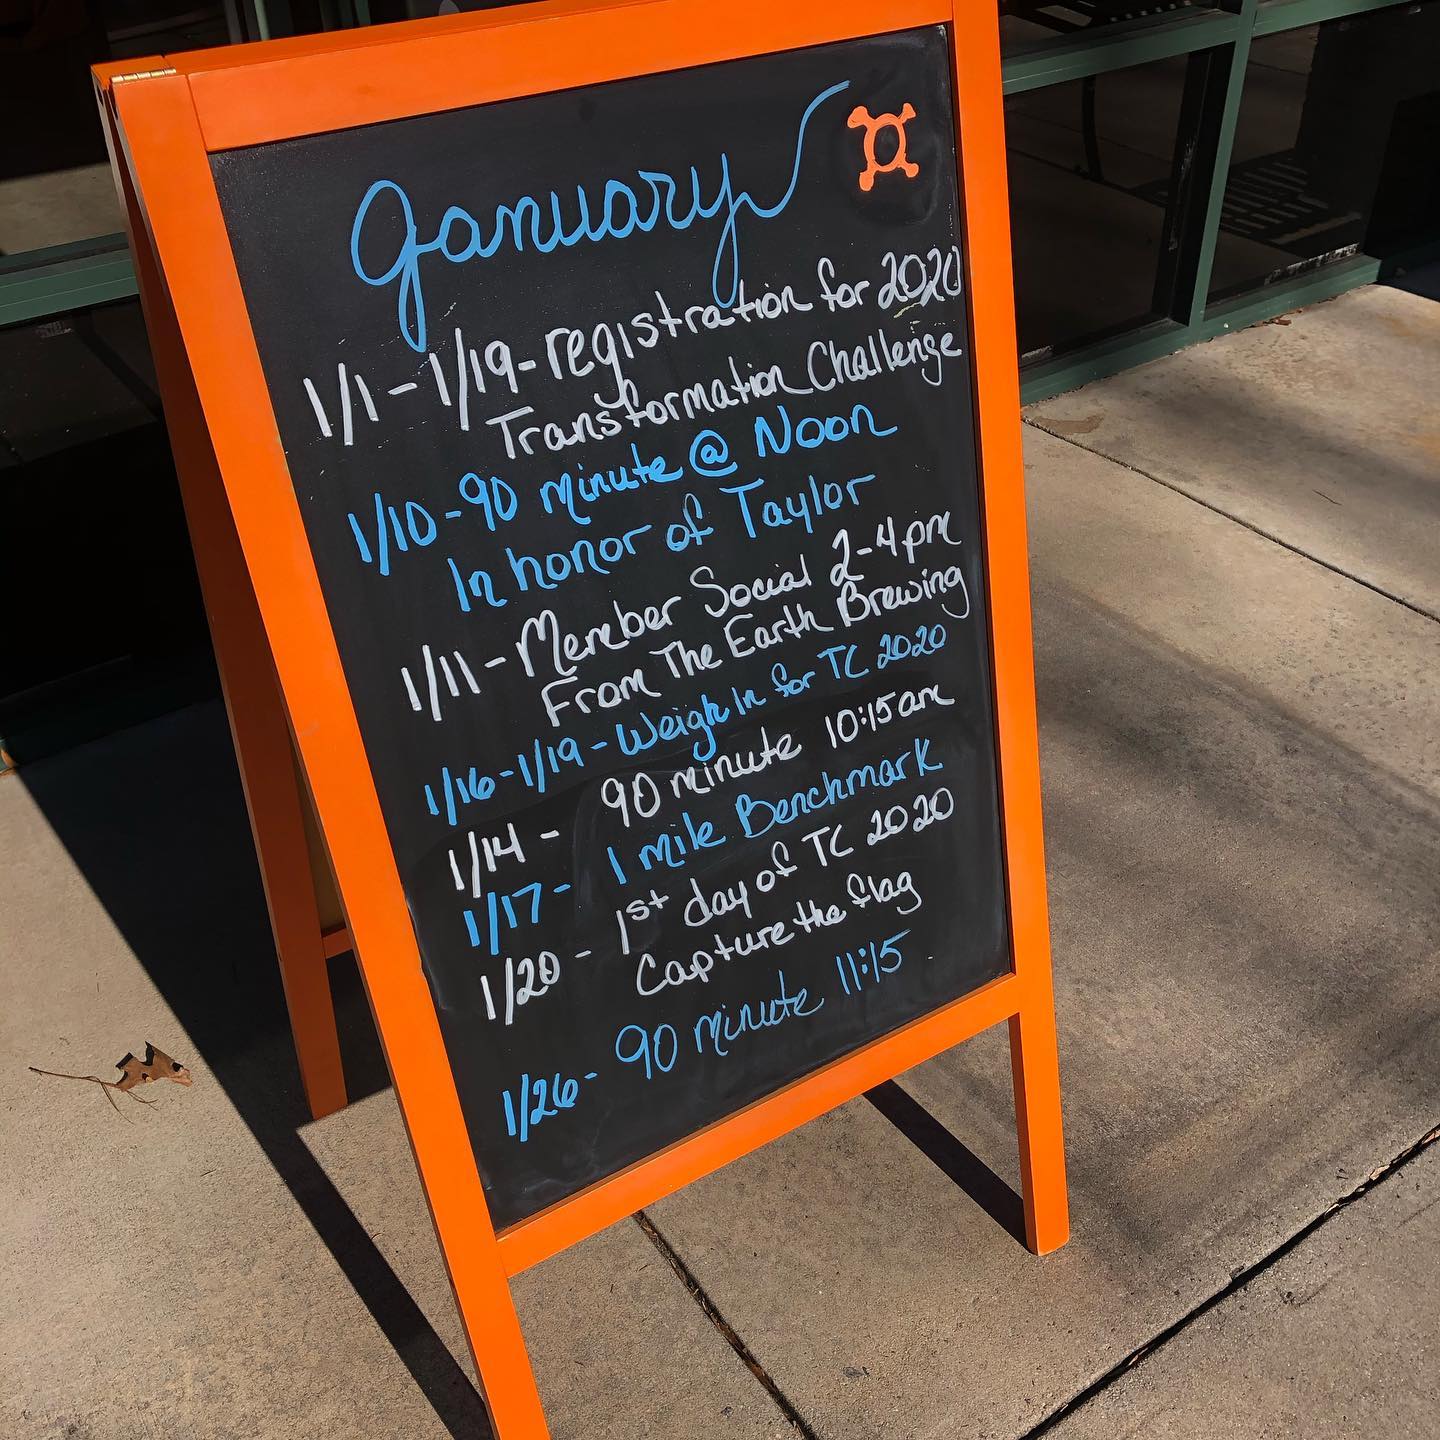 January
1/1-1/19-registration for 2020
Transformation Challenge
1/10-90 minute @ Noon
In honor of Taylor
1/11-Member Social 2-4pm
From The Earth Brewing
1/16-1/19-Weigh In for TC 2020
1/14- 90 minute 10:15am
1/17- 1 mile Benchmark
1/20- 1st day of TC 2020
Capture the flag
1/26- 90 minute 11:15